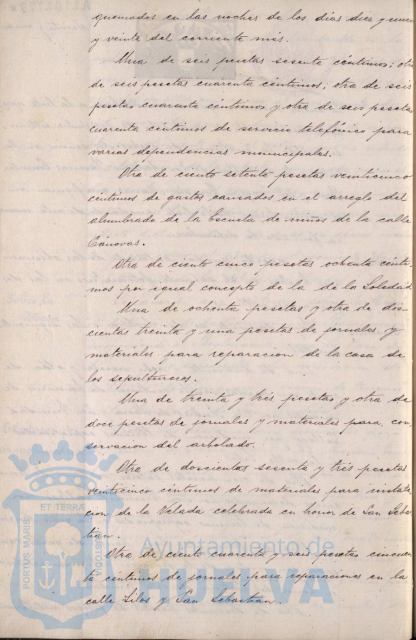 quemados en las noches de los dias diez y nueve
y veinte del corriente mes.
Una de seis pesetas sesenta céntimos; otra
de seis pesetas cuarenta céntimos; otra de seis
pesetas cuarenta céntimos y otra de seis pesetas
cuarenta céntimos de servicio telefónico para
varias dependencias municipales.
Otra de ciento setenta pesetas veinticinco
céntimos de gastos causados en el arreglo del
alumbrado de la Escuela de niños de la calle
Cánovas.
Otra de ciento cinco pesetas ochenta cénti-
mos por igual concepto de la de la Soledad
Una de ochenta pesetas y otra de dos-
cientas treinta y una pesetas de jornales y
materiales para reparacion de la casa de
los sepultureros.
Una de treinta y tres pesetas y otra de
doce pesetas de jornales y materiales para con-
servacion del arbolado.
Otra de doscientas sesenta y tres pesetas
veinticinco céntimos de materiales para instala-
cion de la Velada celebrada en honor de San Sebas-
tian.
Otra de ciento cuarenta y seis pesetas cincuen-
ta céntimos de jornales para reparaciones en la
calle Silos y San Sebastian.
PORTUS MARIS
ET TERRAE
CUSTODIA
Ayuntamiento de
HUELVA